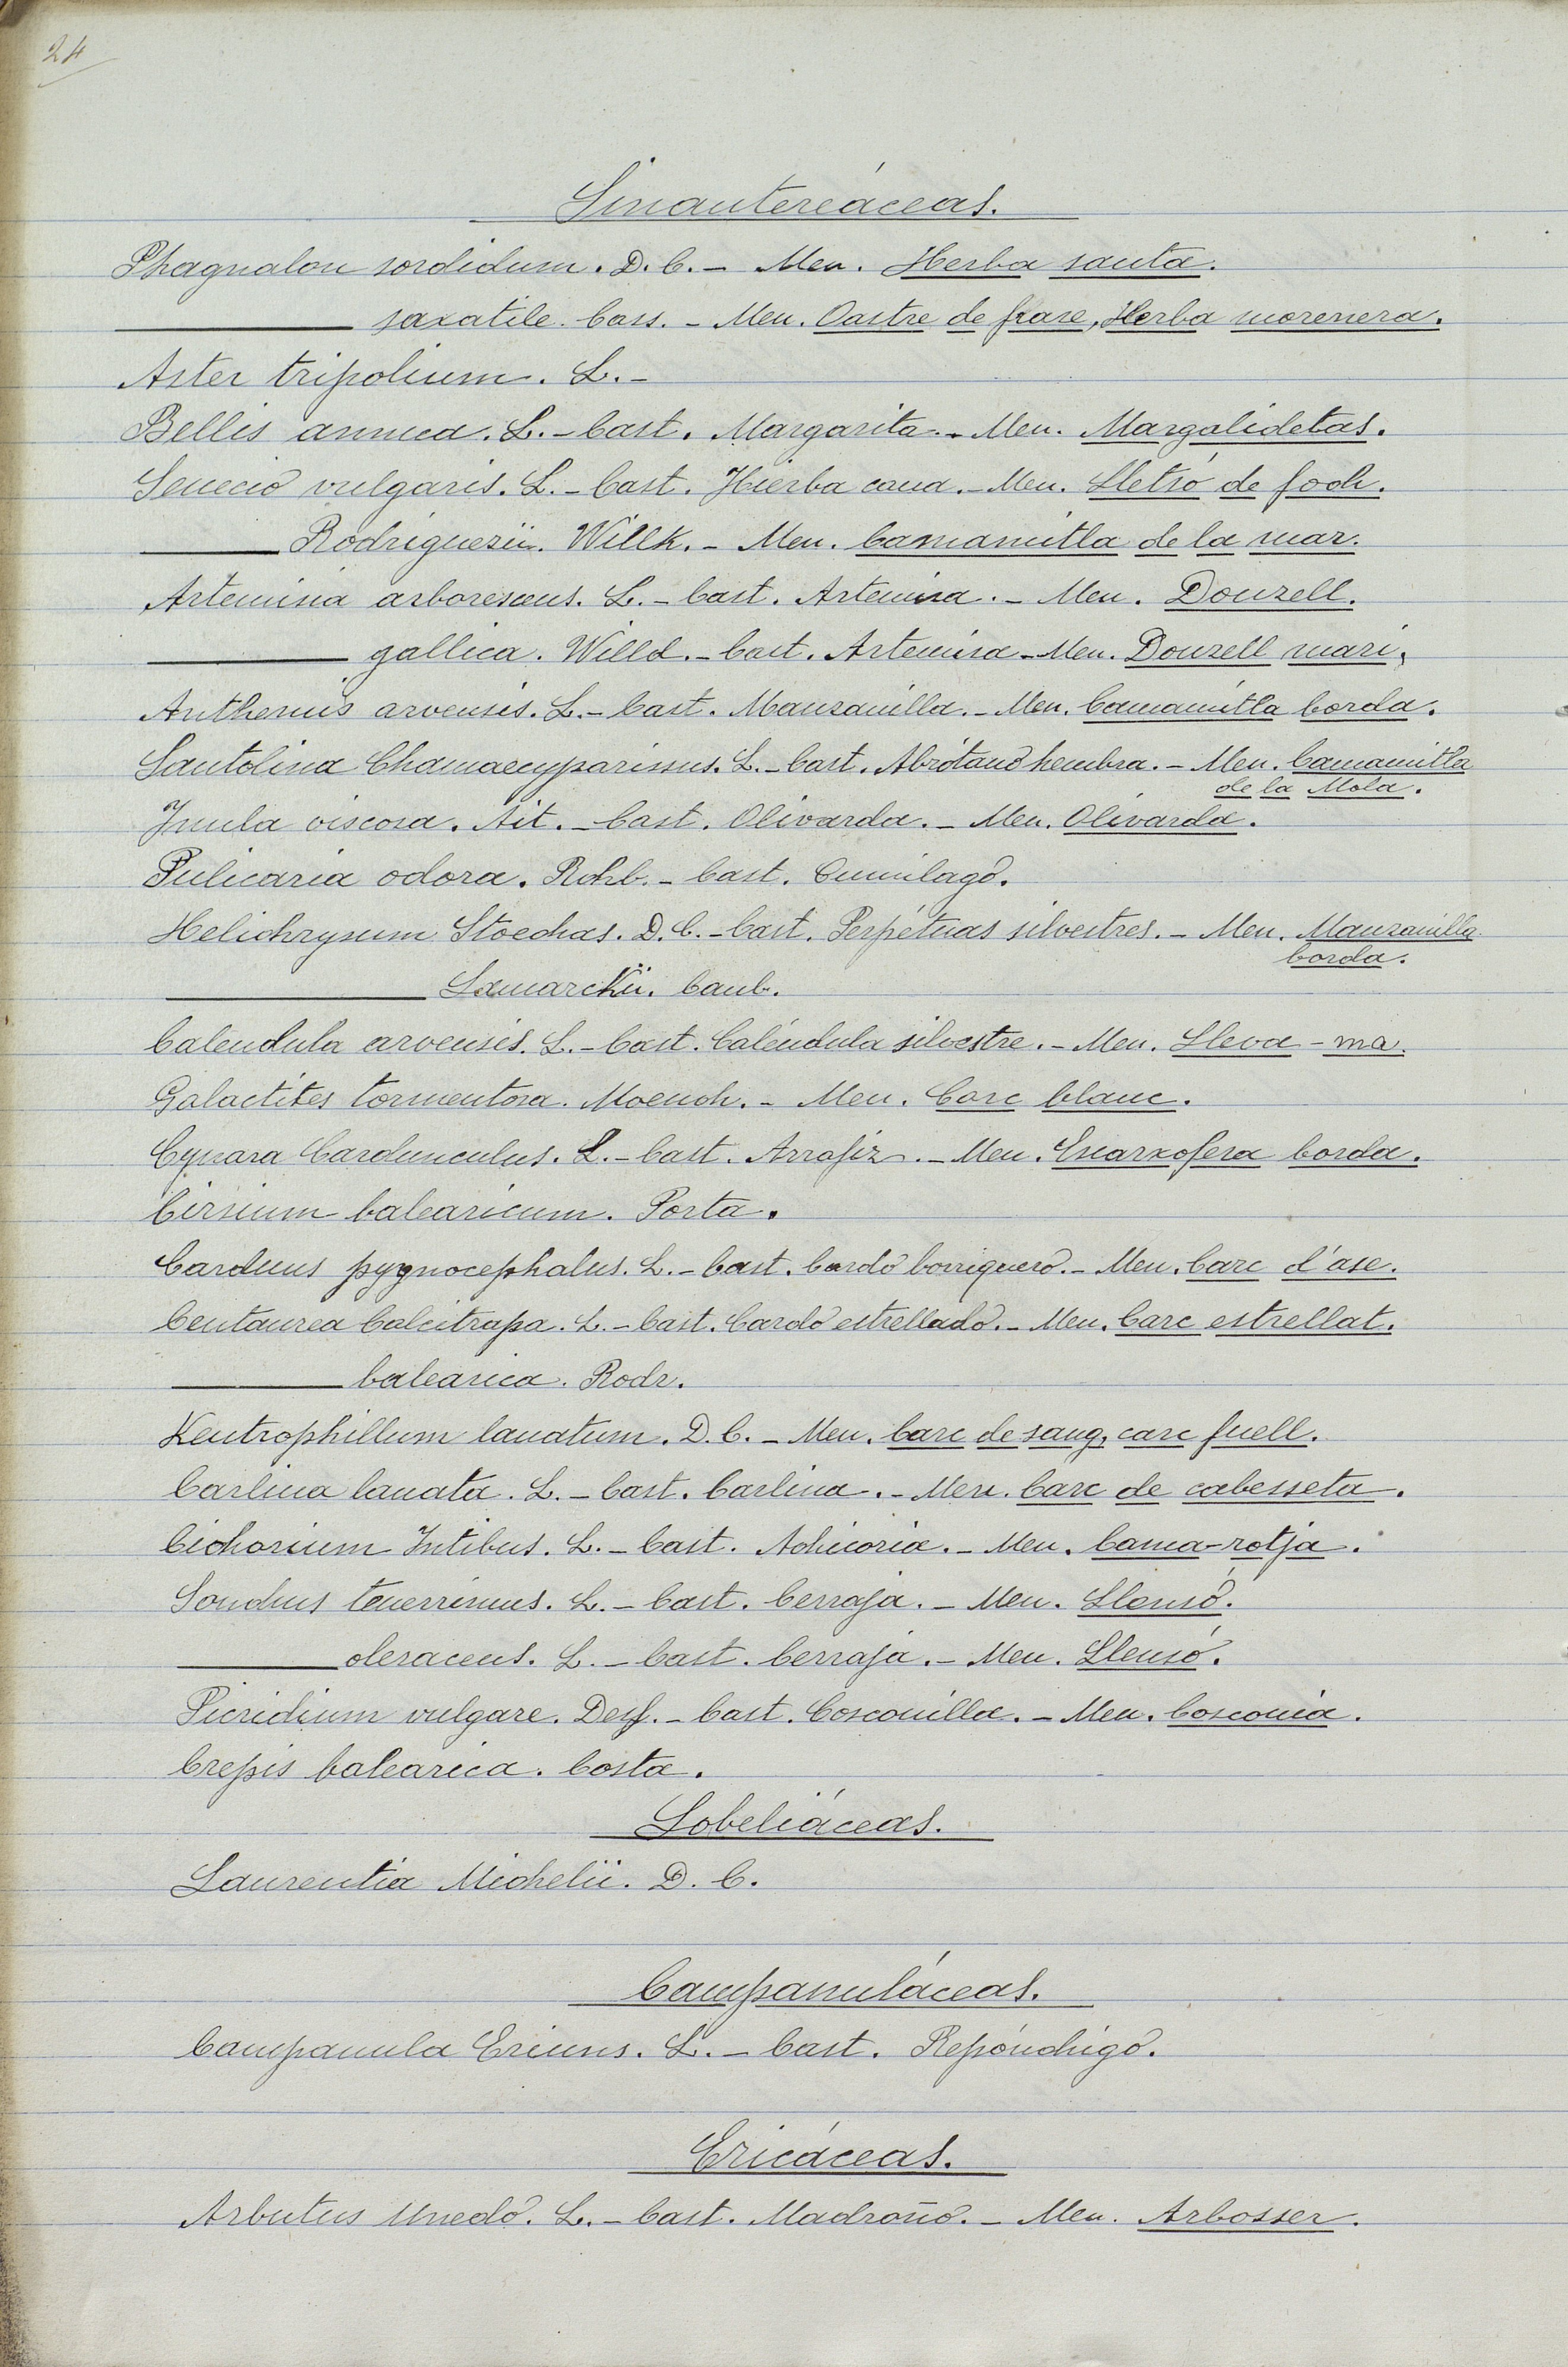 24
Sinantereáceas.
Phagnalon sordidum. D. C. - Men. Herba santa.
——— saxatile. Cass. - Men. Oastre de frare, Herba morenera.
Aster tripolium. L. -
Bellis annua. L. - Cast. Margarita. - Men. Margalidetas.
Senecio vulgaris. L. - Cast. Hierba cana. - Men. Lletsó de foch.
——— Rodriguesii. Willk. - Men. Camamitla de la mar.
Artemisia arborescens. L. - Cast. Artemisa. - Men. Donzell.
——— gallica. Willd. - Cast. Artemisa - Men. Donzell mari.
Anthemis arvensis. L. - Cast. Manzanilla. - Men. Camamitla borda.
Santolina Chamaecyparissus. L. - Cast. Abrótano hembra. - Men. Camamitla
de la Mola.
Inula viscosa. Ait. - Cast. Olivarda. - Men. Olivarda.
Pulicaria odora. Rchb. - Cast. Cunilago.
Helichrysum Stoechas. D. C. - Cast. Perpétuas silvestres. - Men. Manzanilla
borda.
——— Lamarckii. Camb.
Calendula arvensis. L. - Cast. Caléndula silvestre. - Men. Lleva-ma.
Galactites tormentosa. Moench. - Men. Carc blanc.
Cynara Cardunculus. L. - Cast. Arrafiz. - Men. Escarxofera borda.
Cirsium balearicum. Porta.
Carduus pygnocephalus. L. - Cast. Cardo borriquero. - Men. Carc d'ase.
Centaurea Calcitrapa. L. - Cast. Cardo estrellado. - Men. Carc estrellat.
——— balearica. Rodr.
Kentrophillum lanatum. D. C. - Men. Carc de sang, carc fuell.
Carlina lanata. L. - Cast. Carlina. - Men. Carc de cabesseta.
Cichorium Intibus. L. - Cast. Achicoria. - Men. Cama-rotja.
Sonchus tenerrimus. L. - Cast. Cerraja. - Men. Llensó.
——— oleraceus. L. - Cast. Cerraja. - Men. Llensó.
Picridium vulgare. Desf. - Cast. Cosconilla. - Men. Cosconia.
Crepis balearica. Costa.
Lobeliáceas.
Laurentia Michelii. D. C.
Campanuláceas.
Campanula Erinus. L. - Cast. Repónchigo.
Ericáceas.
Arbutus Unedo. L. - Cast. Madroño. - Men. Arbosser.